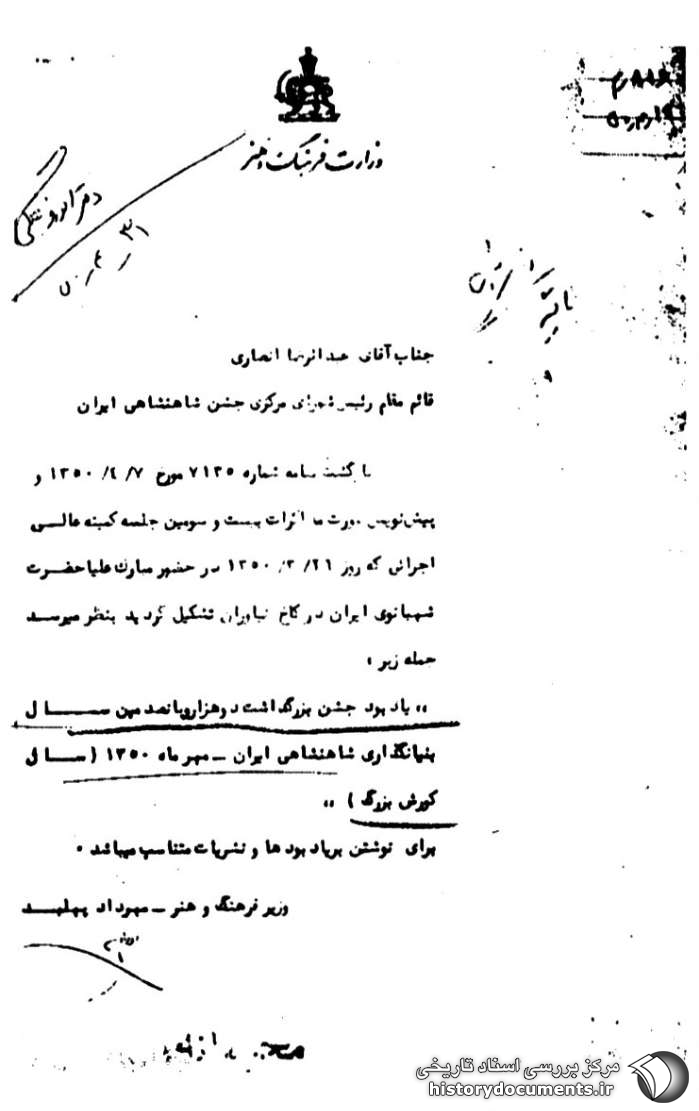 وزارت فرهنگ و هنر
۳۱
۵۰
جناب آقای عبدالرضا انصاری
قائم مقام رئیس شورای مرکزی جشن شاهنشاهی ایران
بازگشت بنامه شماره ۷۱۳۵ مورخ ۱۳۵۰/٤/۷ و
پیش‌نویس صورت مذاکرات بیست و سومین جلسه کمیته عالی
اجرائی که روز ۱۳۵۰/۳/۲۶ در حضور مبارک علیاحضرت
شهبانوی ایران در کاخ نیاوران تشکیل گردید بنظر میرسد
جمله زیر :
,, یاد بود جشن بزرگداشت دوهزاروپانصدمین ســـال
بنیانگذاری شاهنشاهی ایران ــ مهر ماه ۱۳۵۰ (ســـال
کورش بزرگ) ,,
برای نوشتن بریادبودها و نشریات متناسب میباشد .
وزیر فرهنگ و هنر ــ مهرداد پهلبد
مرکز بررسی اسناد تاریخی
historydocuments.ir